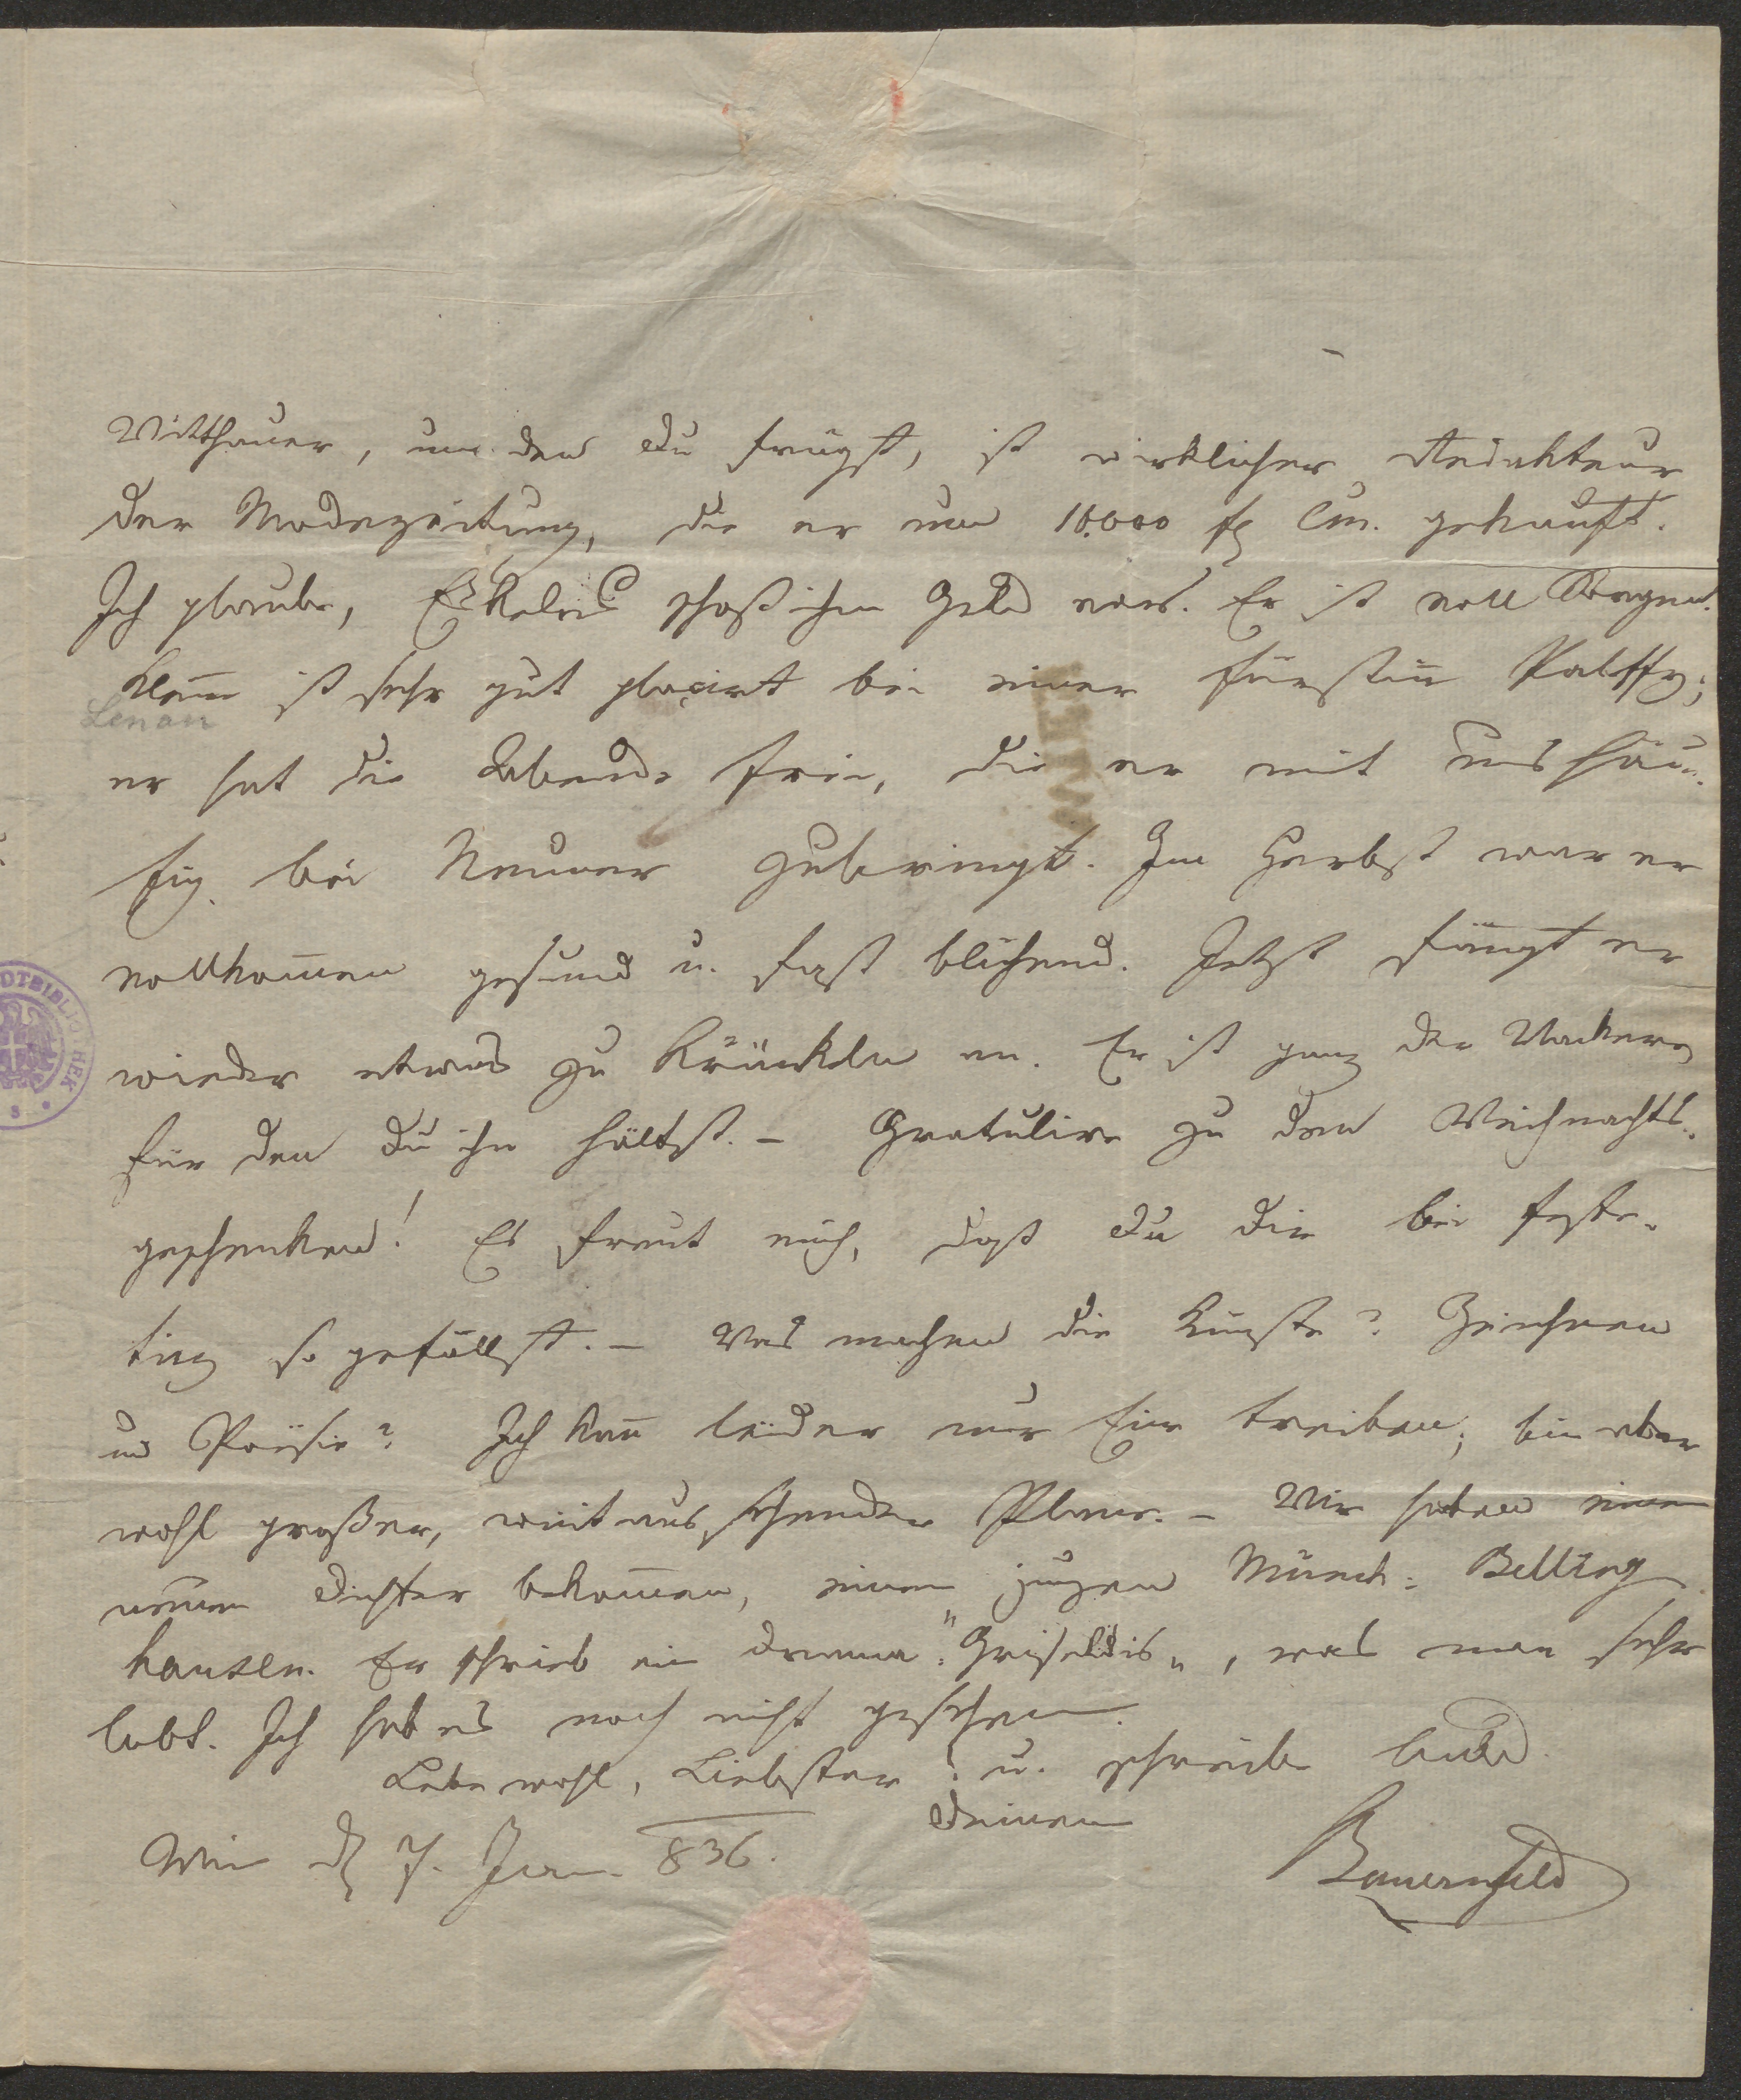 Witthauer, um den Du frägst, ist wirklicher Redakteur
der Modezeitung, die er um 10.000 fl Cm. gekauft.
Ich glaube, Eskeles schoß ihm Geld vor. Er ist voll
Klemm ist sehr gut plaçirt bei einer Fürstin̄ Palffy;
Lenau
er hat die Abende frei, die er mit uns häu-
fig bei Neuner zubringt. Im Herbst war er
vollkom̄en gesund u. fast blühend. Jetzt fängt er
wieder etwas zu kränkeln an. Er ist ganz der Wackere
für den Du ihn hältst. – Gratulire zu den Weihnachts-
geschenken! Es freut mich, daß Du Dir bei
so gefällst. – Was machen die Künste? Zeichnen
und Poësie? Ich kan̄ leider nur Eine treiben; bin aber
voll großer, weitaus sehender Plane. – Wir haben einen
neuen Dichter bekom̄en, einen jungen Münch-Belling
hausen. Er schrieb ein Drama: "Griseldis", was man sehr
lobt. Ich hab es noch nicht gesehen.
Lebe wohl, Liebster! u. schreibe bald
Deinem
Wien d 7. Jan. 836.
Bauernfeld
DTBIBLIOTHEK
WIEN